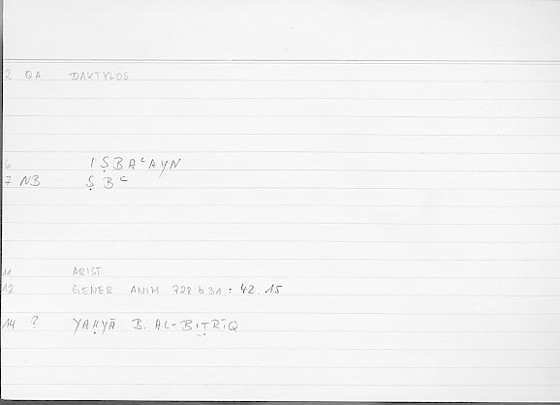 2 QA DAKTYLOS
6 IṢBAᶜAYN
7 NB ṢBᶜ
11 ARIST
12 GENER ANIM 728b31 : 42.15
14 ? YAḤYĀ B. AL-BIṬRĪQ